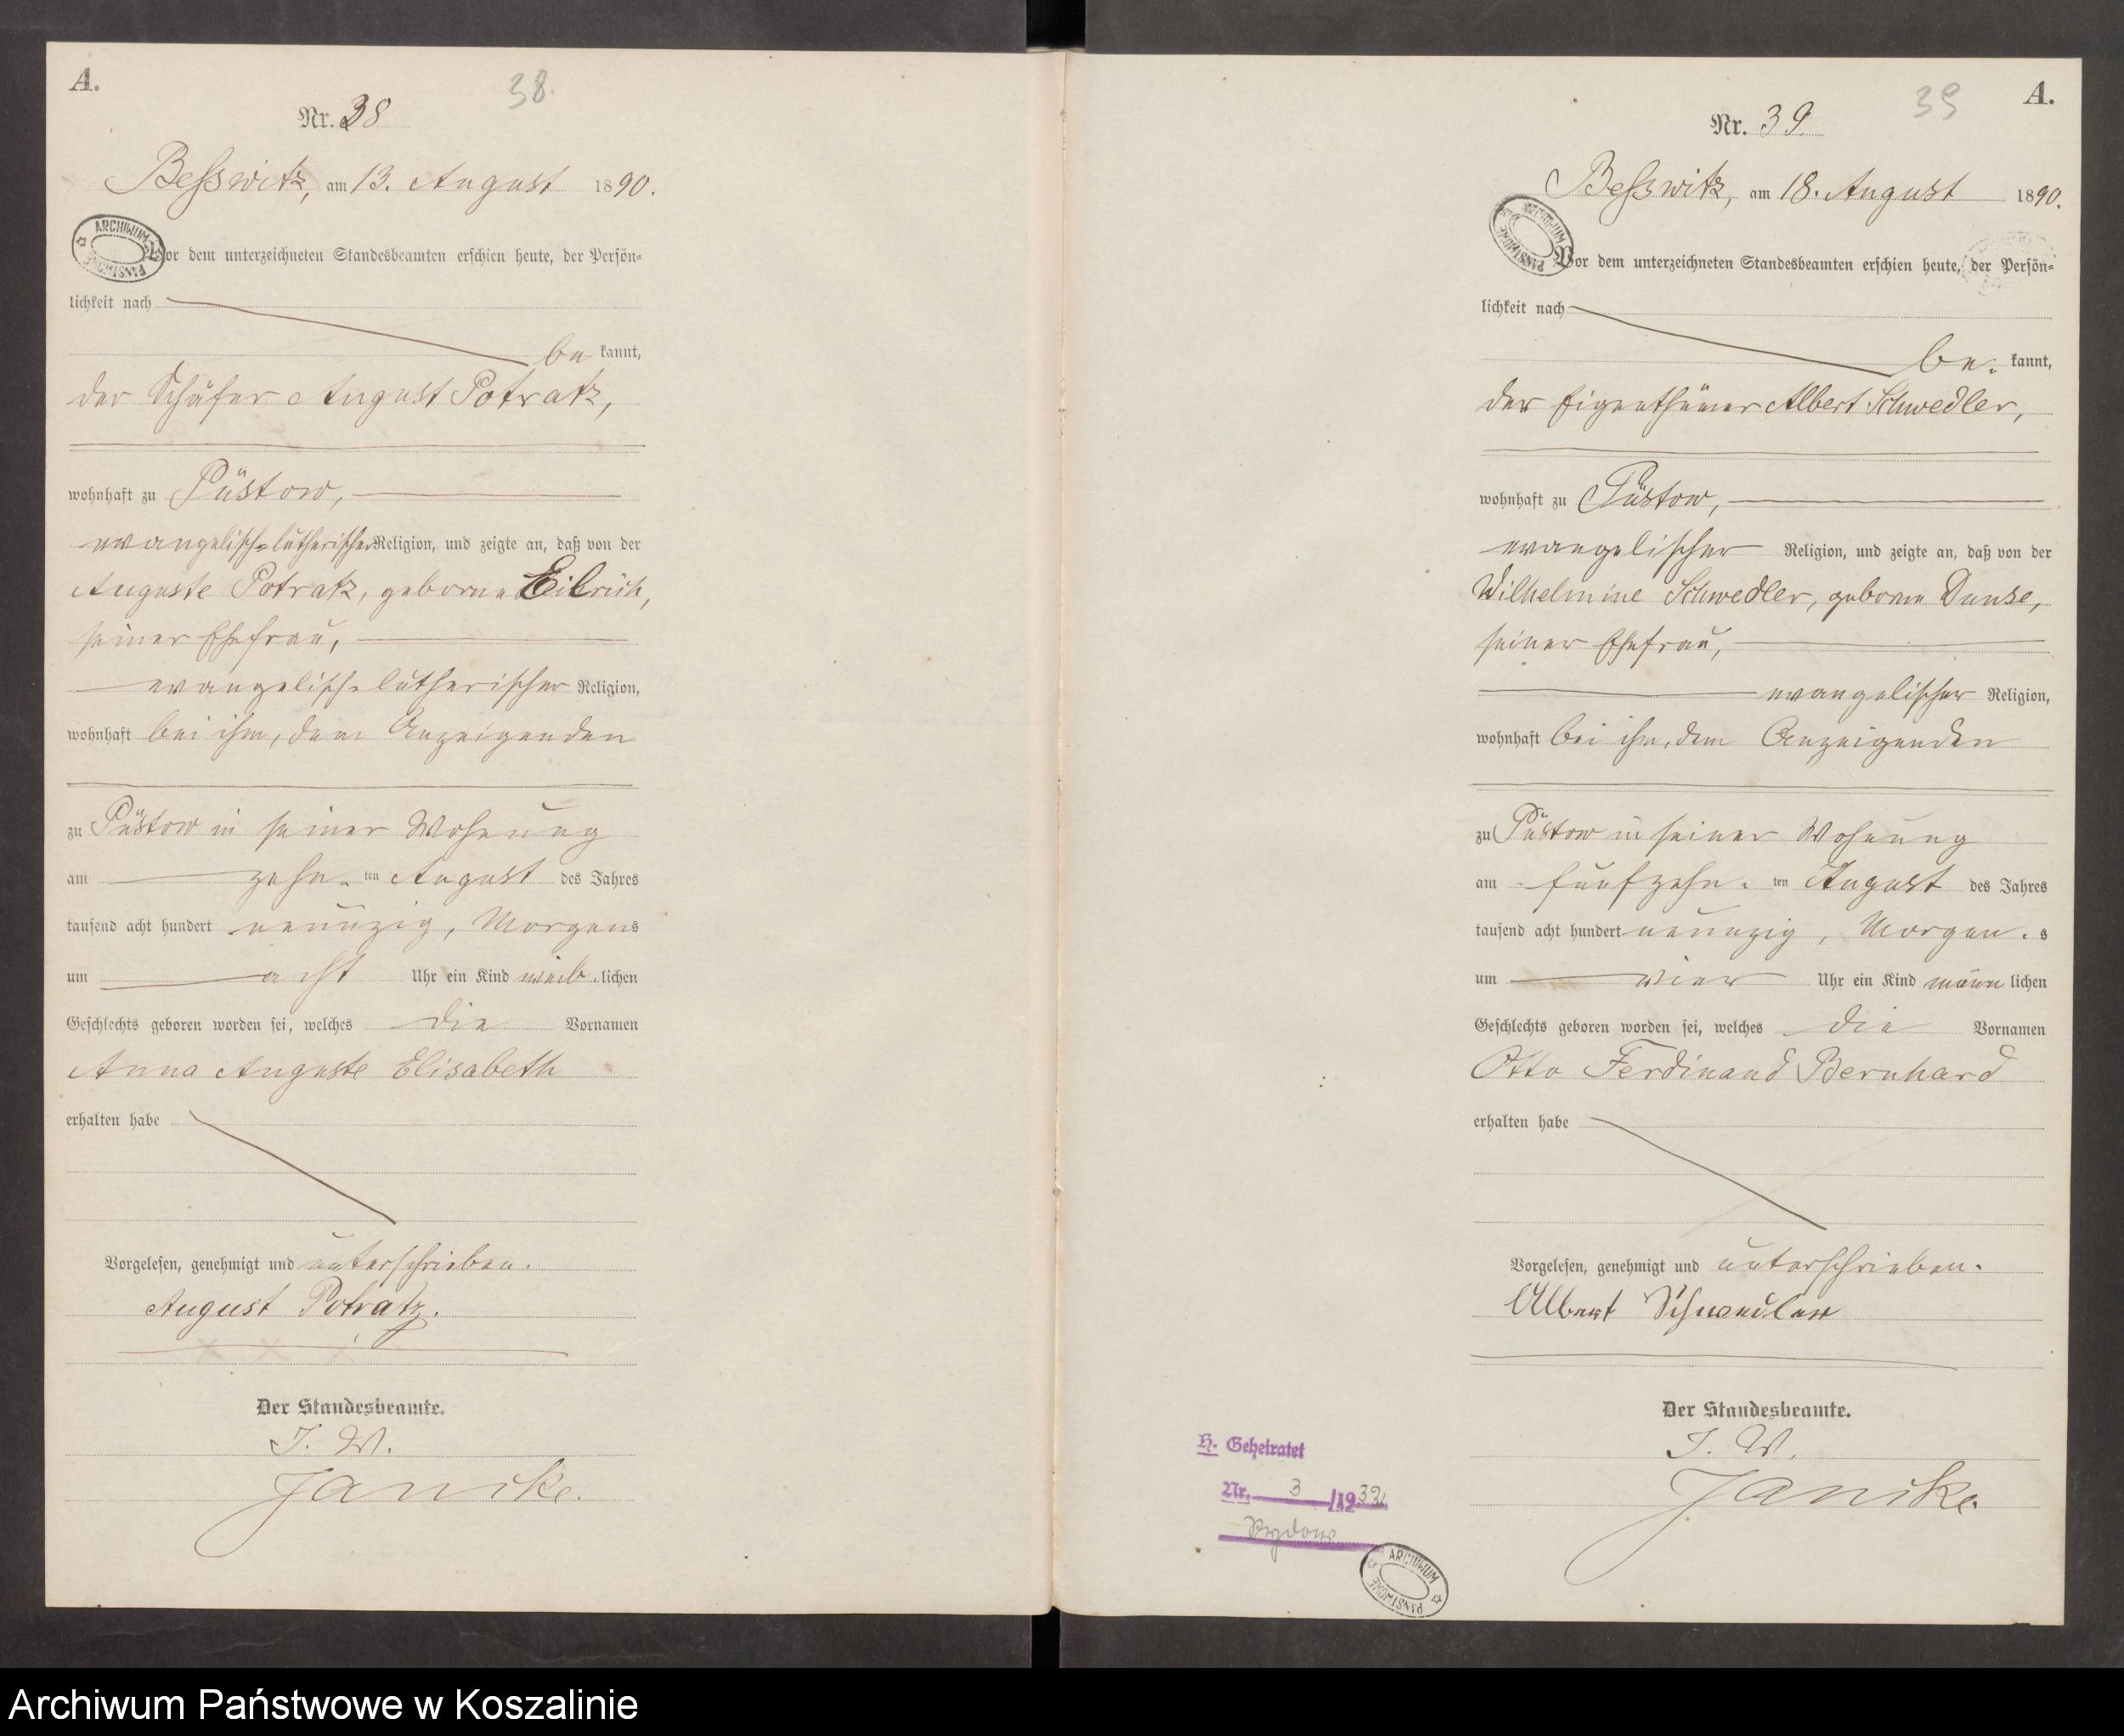 A.
38
Nr. 38
Besswitz, am 13. August 1890.
ARCHIWUM PAŃSTWOWE
Vor dem unterzeichneten Standesbeamten erschien heute, der Persön=
lichkeit nach
be kannt,
der Schäfer August Potratz,
wohnhaft zu Püstow,
evangelisch=lutherischer Religion, und zeigte an, daß von der
Auguste Potratz, geborne Eilrich,
seiner Ehefrau,
evangelisch=lutherischer Religion,
wohnhaft bei ihm, dem Anzeigenden
zu Püstow in seiner Wohnung
am zehn-ten August des Jahres
tausend acht hundert neunzig, Morgens
um acht Uhr ein Kind weib-lichen
Geschlechts geboren worden sei, welches die Vornamen
Anna Auguste Elisabeth
erhalten habe
Vorgelesen, genehmigt und unterschrieben.
August Potratz.
Der Standesbeamte.
I. V.
Jancke.
39
A.
Nr. 39.
Besswitz, am 18. August 1890.
ARCHIWUM PAŃSTWOWE
Vor dem unterzeichneten Standesbeamten erschien heute, der Persön=
lichkeit nach
be- kannt,
der Eigenthümer Albert Schwedler,
wohnhaft zu Püstow,
evangelischer Religion, und zeigte an, daß von der
Wilhelmine Schwedler, geborne Dunse,
seiner Ehefrau,
evangelischer Religion,
wohnhaft bei ihm, dem Anzeigenden
zu Püstow in seiner Wohnung
am fünfzehn-ten August des Jahres
tausend acht hundert neunzig, Morgen-s
um vier Uhr ein Kind männlichen
Geschlechts geboren worden sei, welches die Vornamen
Otto Ferdinand Bernhard
erhalten habe
Vorgelesen, genehmigt und unterschrieben.
Albert Schwedler
Der Standesbeamte.
I. V.
Jancke.
H. Geheiratet
Nr. 3 /1932
ARCHIWUM PAŃSTWOWE
Archiwum Państwowe w Koszalinie